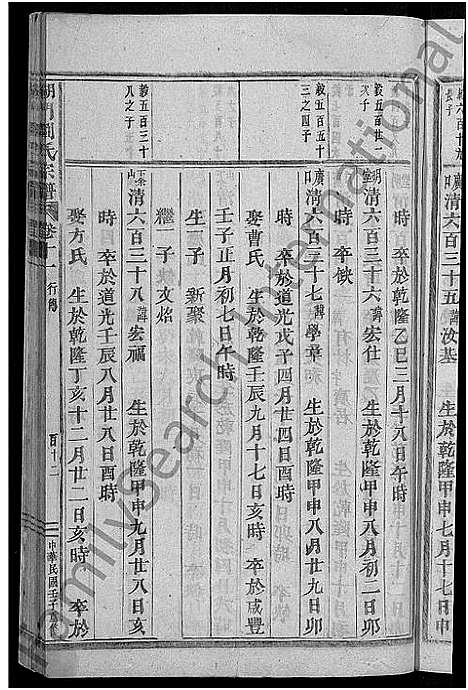 長子
清六百三十五 諱汝基 生於乾隆甲申七月十七日申
時 卒於乾隆乙巳三月十八日午時
毅五百廿一
次子
清六百三十六 諱宏仕 生於乾隆甲申八月初二日卯
時 卒缺
毅五百五十
三之四子
清六百三十七 諱學章 生於乾隆甲申八月廿九日卯
時 卒於道光戊子四月廿四日酉時
娶曹氏 生於乾隆壬辰九月十七日亥時 卒於咸豐
壬子正月初七日午時
生一子 新聚
繼一子 文焰
毅五百三十
八之子
清六百三十八 諱宏福 生於乾隆甲申九月廿八日亥
時 卒於道光壬辰八月廿八日酉時
娶方氏 生於乾隆丁亥十二月廿二日亥時 卒於
周氏宗譜 卷十一 行傳 百十二 中華民國壬子
FamilySearch International